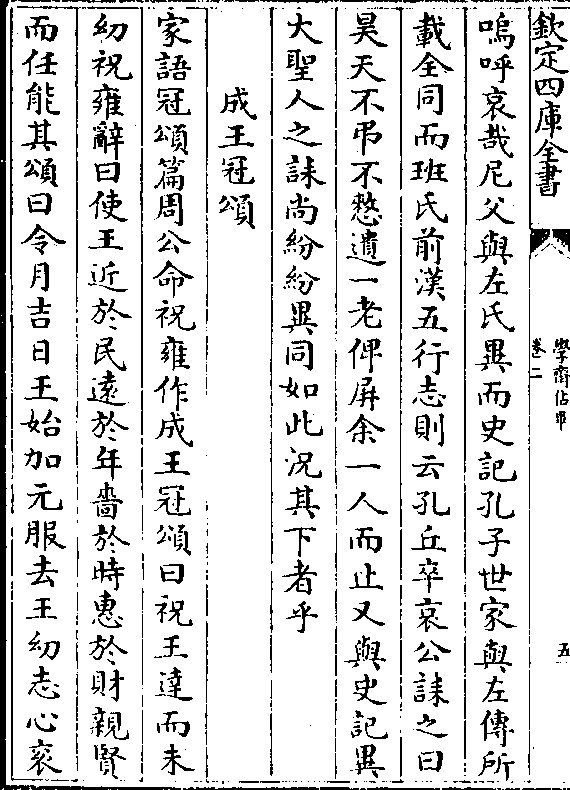 欽定四庫全書
學齋佔畢
卷二
五
嗚呼哀哉尼父與左氏異而史記孔子世家與左傳所
載全同而班氏前漢五行志則云孔丘卒哀公誄之曰
昊天不弔不憗遺一老俾屏余一人而止又與史記異
大聖人之誄尚紛紛異同如此況其下者乎
成王冠頌
家語冠頌篇周公命祝雍作成王冠頌曰祝王達而未
幼祝雍辭曰使王近於民遠於年嗇於時惠於財親賢
而任能其頌曰令月吉日王始加元服去王幼志心衮